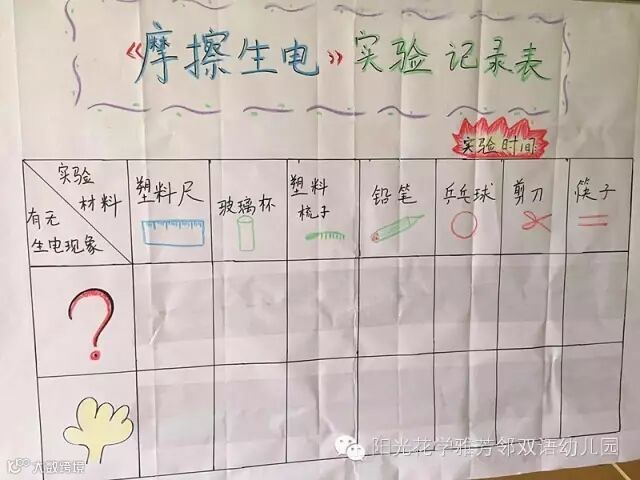 《摩擦生电》实验记录表
实验时间
实验
材料
有无
生电现象
塑料尺
玻璃杯
塑料
梳子
铅笔
乒乓球
剪刀
筷子
?
阳光花学雅芳邻双语幼儿园
大数跨境